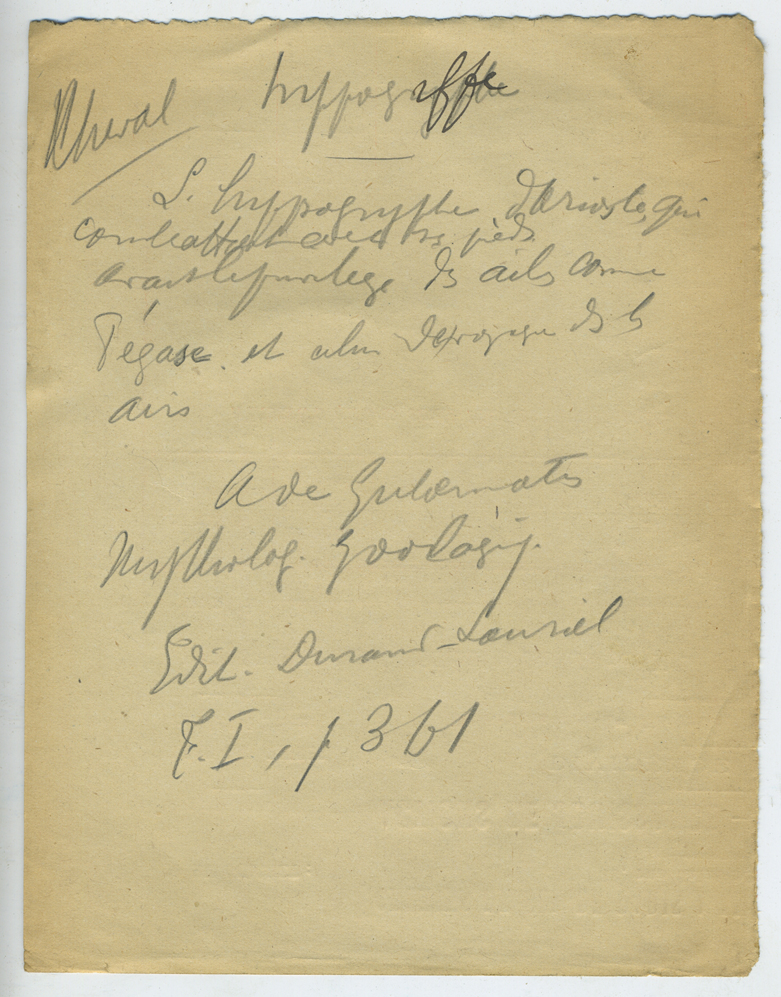 Cheval
hyppogriffe
L'hyppogryphe d'Arioste, qui
combattait avec ses pieds
avait le privilege ds ailes comme
Pégase. et celui de voyager ds ls
airs
A de Gubernatis
Mytholog. zoologiq.
Edit. Durand-Lauriel
T. I, p 361